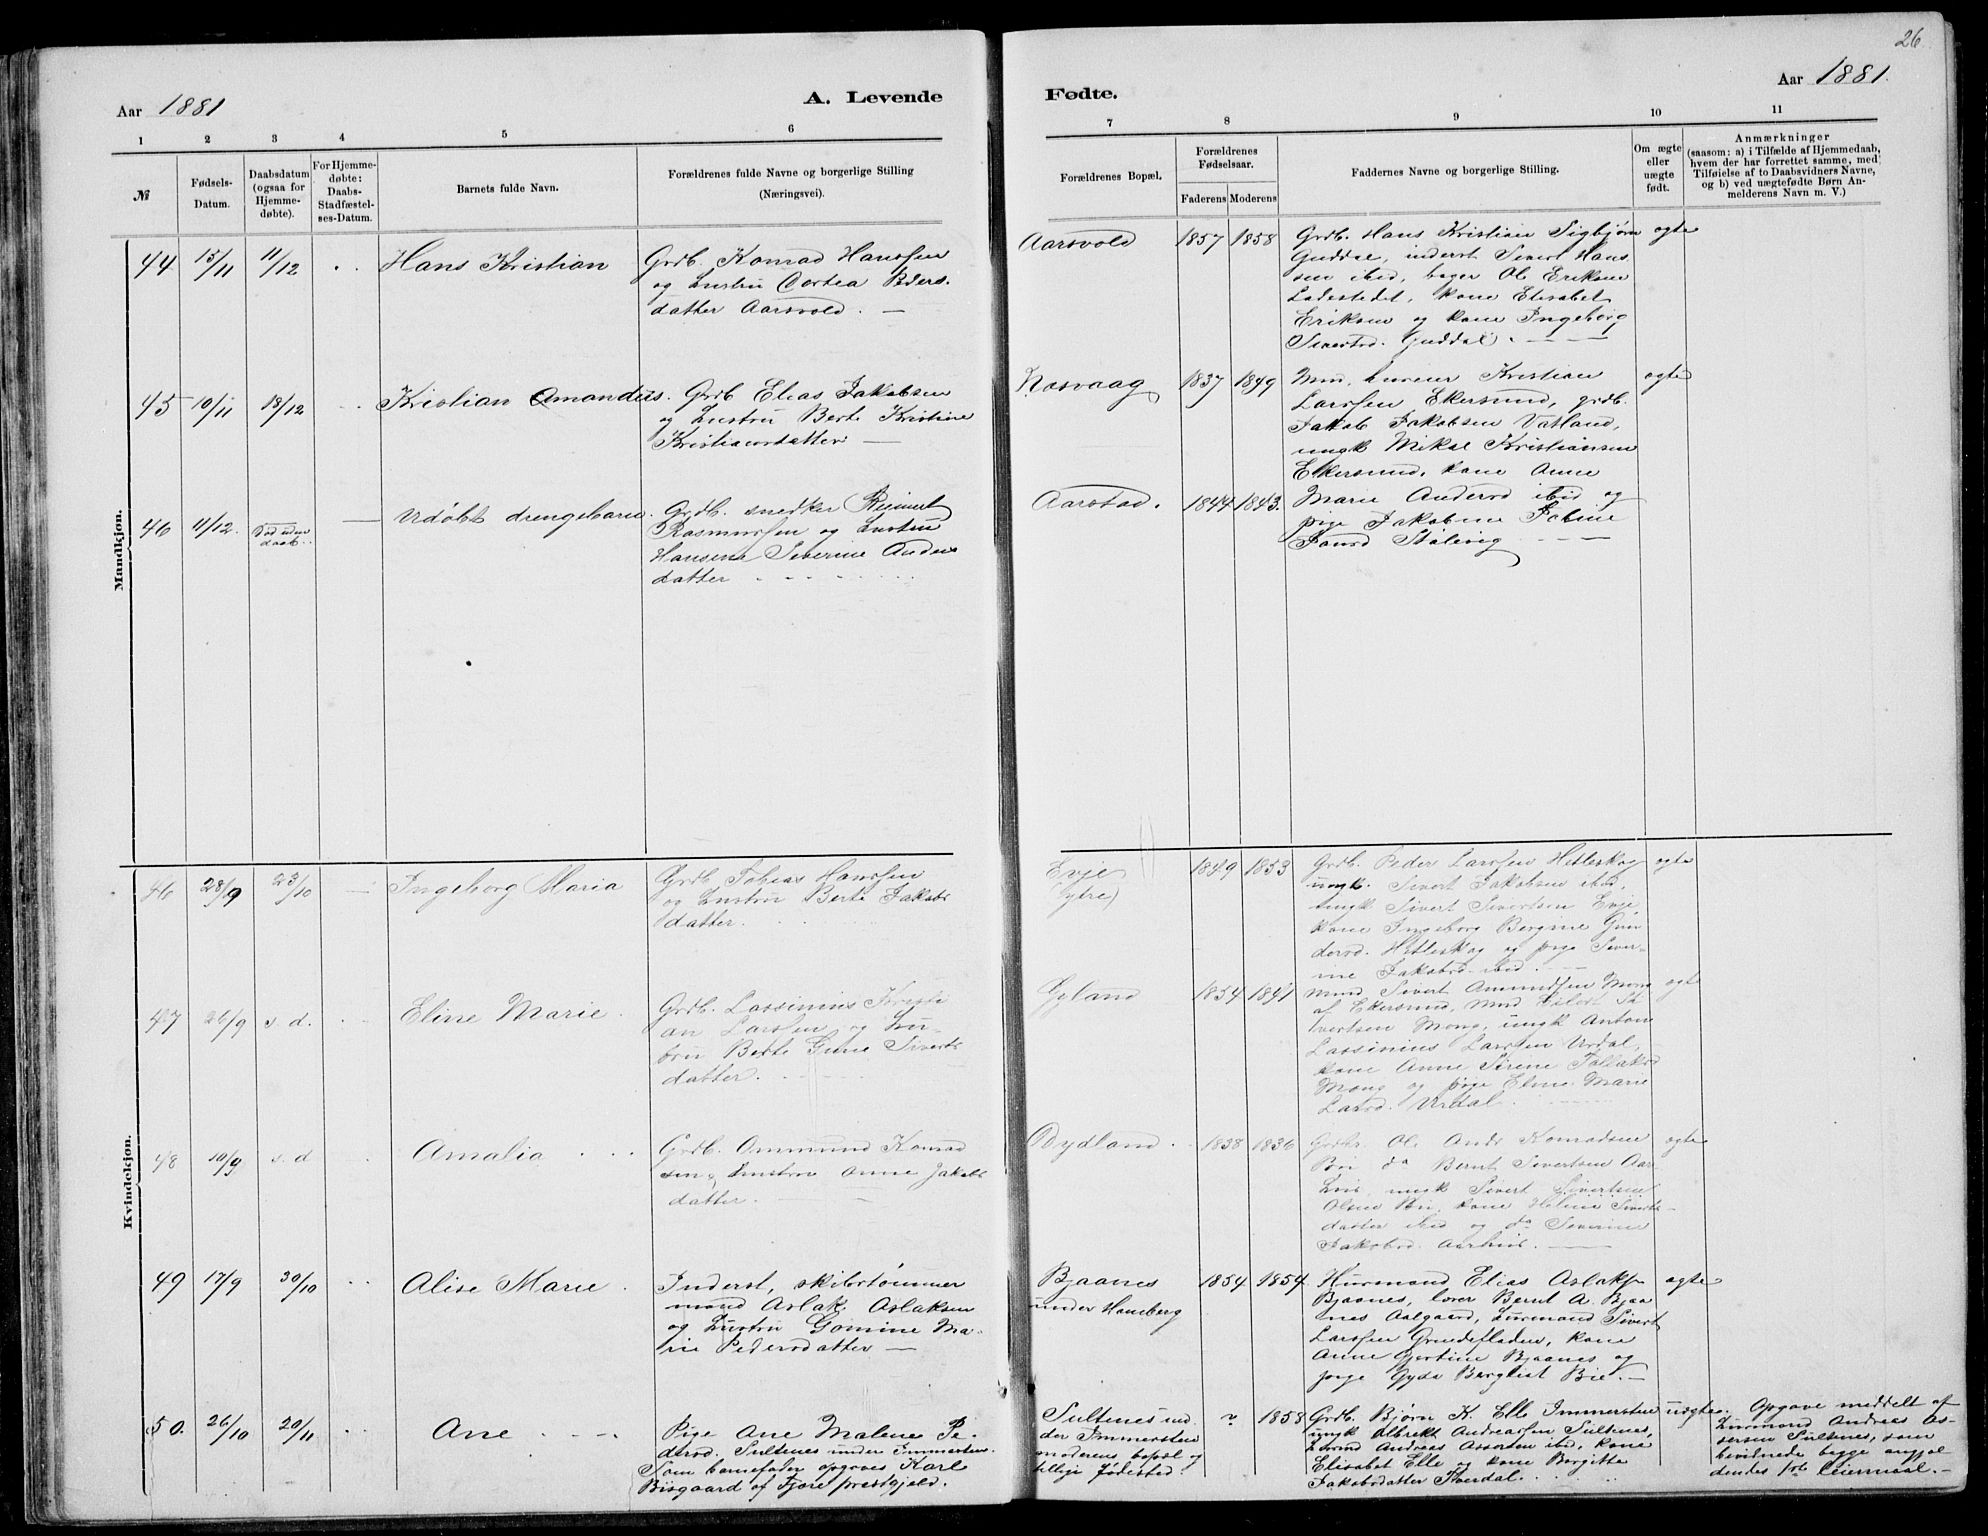 26
Aar 1881
A. Levende
Fødte.
Aar 1881.
1 2 3 4 5 6 7 8 9 10 11
№
Fødsels-
Datum.
Daabsdatum
(ogsaa for
Hjemme-
døbte).
For Hjemme-
døbte:
Daabs-
Stadfæstel-
ses-Datum.
Barnets fulde Navn.
Forældrenes fulde Navne og borgerlige Stilling
(Næringsvei).
Forældrenes Bopæl.
Forældrenes
Fødselsaar.
Faderens Moderens
Faddernes Navne og borgerlige Stilling.
Om ægte
eller
uægte
født.
Anmærkninger
(saasom: a) i Tilfælde af Hjemmedaab,
hvem der har forrettet samme, med
Tilføielse af to Daabsvidners Navne,
og b) ved uægtefødte Børn An-
melderens Navn m. V.)
Mandkjøn.
44 15/11 11/12 Hans Kristian
Grdb. Konrad Hanssen
og Hustru Peders
datter Aarsvold.
Aarsvold 1857 1858
Grdb. Hans Kristian Sigbjørn
Guddal, inderst Sivert Hans
sen ibid, bager Ol. Eriksen
Ladestedet, kone Elisabet
Eriksen og kone Ingeborg
Sivertsd. Guddal.
ægte
45 10/11 18/12 Kristian Amandus.
Grdb Elias Jakobsen
og Hustru Berte Kristine
Kristiansdatter
Nosvaag 1837 1849
Kristian
Larssen Ekersund, grdb.
Jakob Jakobsen Vatland,
ungk Mikal Kristiansen
Ekersund, kone Anne
Marie Andersd ibid og
pige Jakobine
Stålevig
ægte
46 11/12. Død uden
daab.
Udøbt drengebarn.
Grdb. snedker Reinert
Rasmussen og Hustru
Hansena Severine Anders
datter
Aarstad. 1844 1843.
Kvindekjøn.
46 28/9 23/10 Ingeborg Maria
Grdb Tobias Hanssen
og Hustru Berte Jakobs
datter.
Evje
(ytre)
1849 1853
Grdb. Peder Larssen Hetleskog
ungk. Sivert Jakobsen ibid,
ungk Sivert Sivertsen Evje
kone Ingeborg Bergine Gun
dersd. Hetleskog og pige Sever-
ine Jakobsd ibid.
ægte
47 26/9 s. d. Eline Marie
Grdb. Lassinius Kristi
an Larssen og Hu-
stru Berte Gurine Siverts
datter.
Gyland 1854 1841
Mmd Sivert Ammundsen Mong
af Ekersund, Mmd Si
vertsen Mong, ungk Anton
Lassinius Larssen Urdal,
kone Anne Sirene Tollaksd
Mong og pige Eline Marie
Larsd. Urdal.
ægte
48 10/9 s. d Amalia
Grdb. Ommund Konrad
sen og Hustru Anne Jakobs
datter.
Dydland. 1838 1836
Grdb. Ol. Andr Konradsen
Bø da Bernt Sivertsen Aar
ungk Sivert Sivertsen
Olsen Bø, kone Helene Siverts-
datter ibid og da Severine
Jakobsd.
ægte
49 17/9 30/10 Alise Marie
Inderst, skibstømmer
mand Aslak Aslaksen
og Hustru Gomine Ma-
rie Pedersdatter
Bjaanes
under Hauberg
1854 1854
Husmand Elias Aslaks
Bjaanes, lærer Bernt A. Bjaa
nes Aalgaard, Husmand Sivert
Larssen Grudefladen, kone
Anne Gjertine Bjaanes og
pige Gyda Bergliot Bie.
ægte
50. 26/10 20/11 Ane
Pige Ane Malene Pe-
dersd. Sultenes under Immersten.
Som barnefader opgaves Karl
Bisgaard af Fjære prestegjeld.
Sultenes un
der Immersten
moderens bopæl og
tillige fødested.
? 1858
Grdb. Bjørn K. Elle Immersten
ungk Albrekt Andreassen Sultenes,
Husmd Andreas Assersen ibid, kone
Elisabet Elle og kone Borgitte
Jakobsdatter Stuvdal.
uægte.
Opgave meddelt af
Husmand Andreas As-
sersen Sultenes, som
bevidnede begge angjæl
dendes 1ste leiermaal.